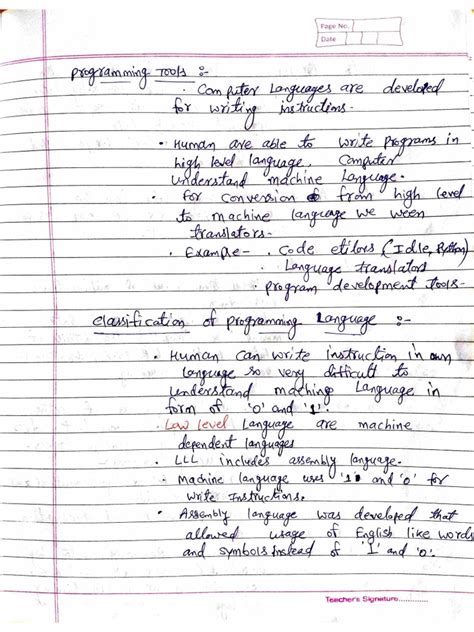 Page No.
Date
Programming Tools :-
• Computer Languages are developed
for writing instructions.
• Human are able to write programs in
high level language. Computer
understand machine Language.
• For conversion of from high level
to machine language we ween
translators.
• Example- • Code etilors (Idle, Python)
• Language translators
• program development tools-
classification of programming Language :-
• Human can write instruction in own
language so very difficult to
understand maching Language in
form of '0' and '1'.
• Low level Language are machine
dependent languages
• LLL includes assembly language.
• Machine language uses '1' and '0' for
write Instructions.
• Assembly language was developed that
allowed usage of English like words
and symbols instead of '1' and '0'.
Teacher's Signature..............